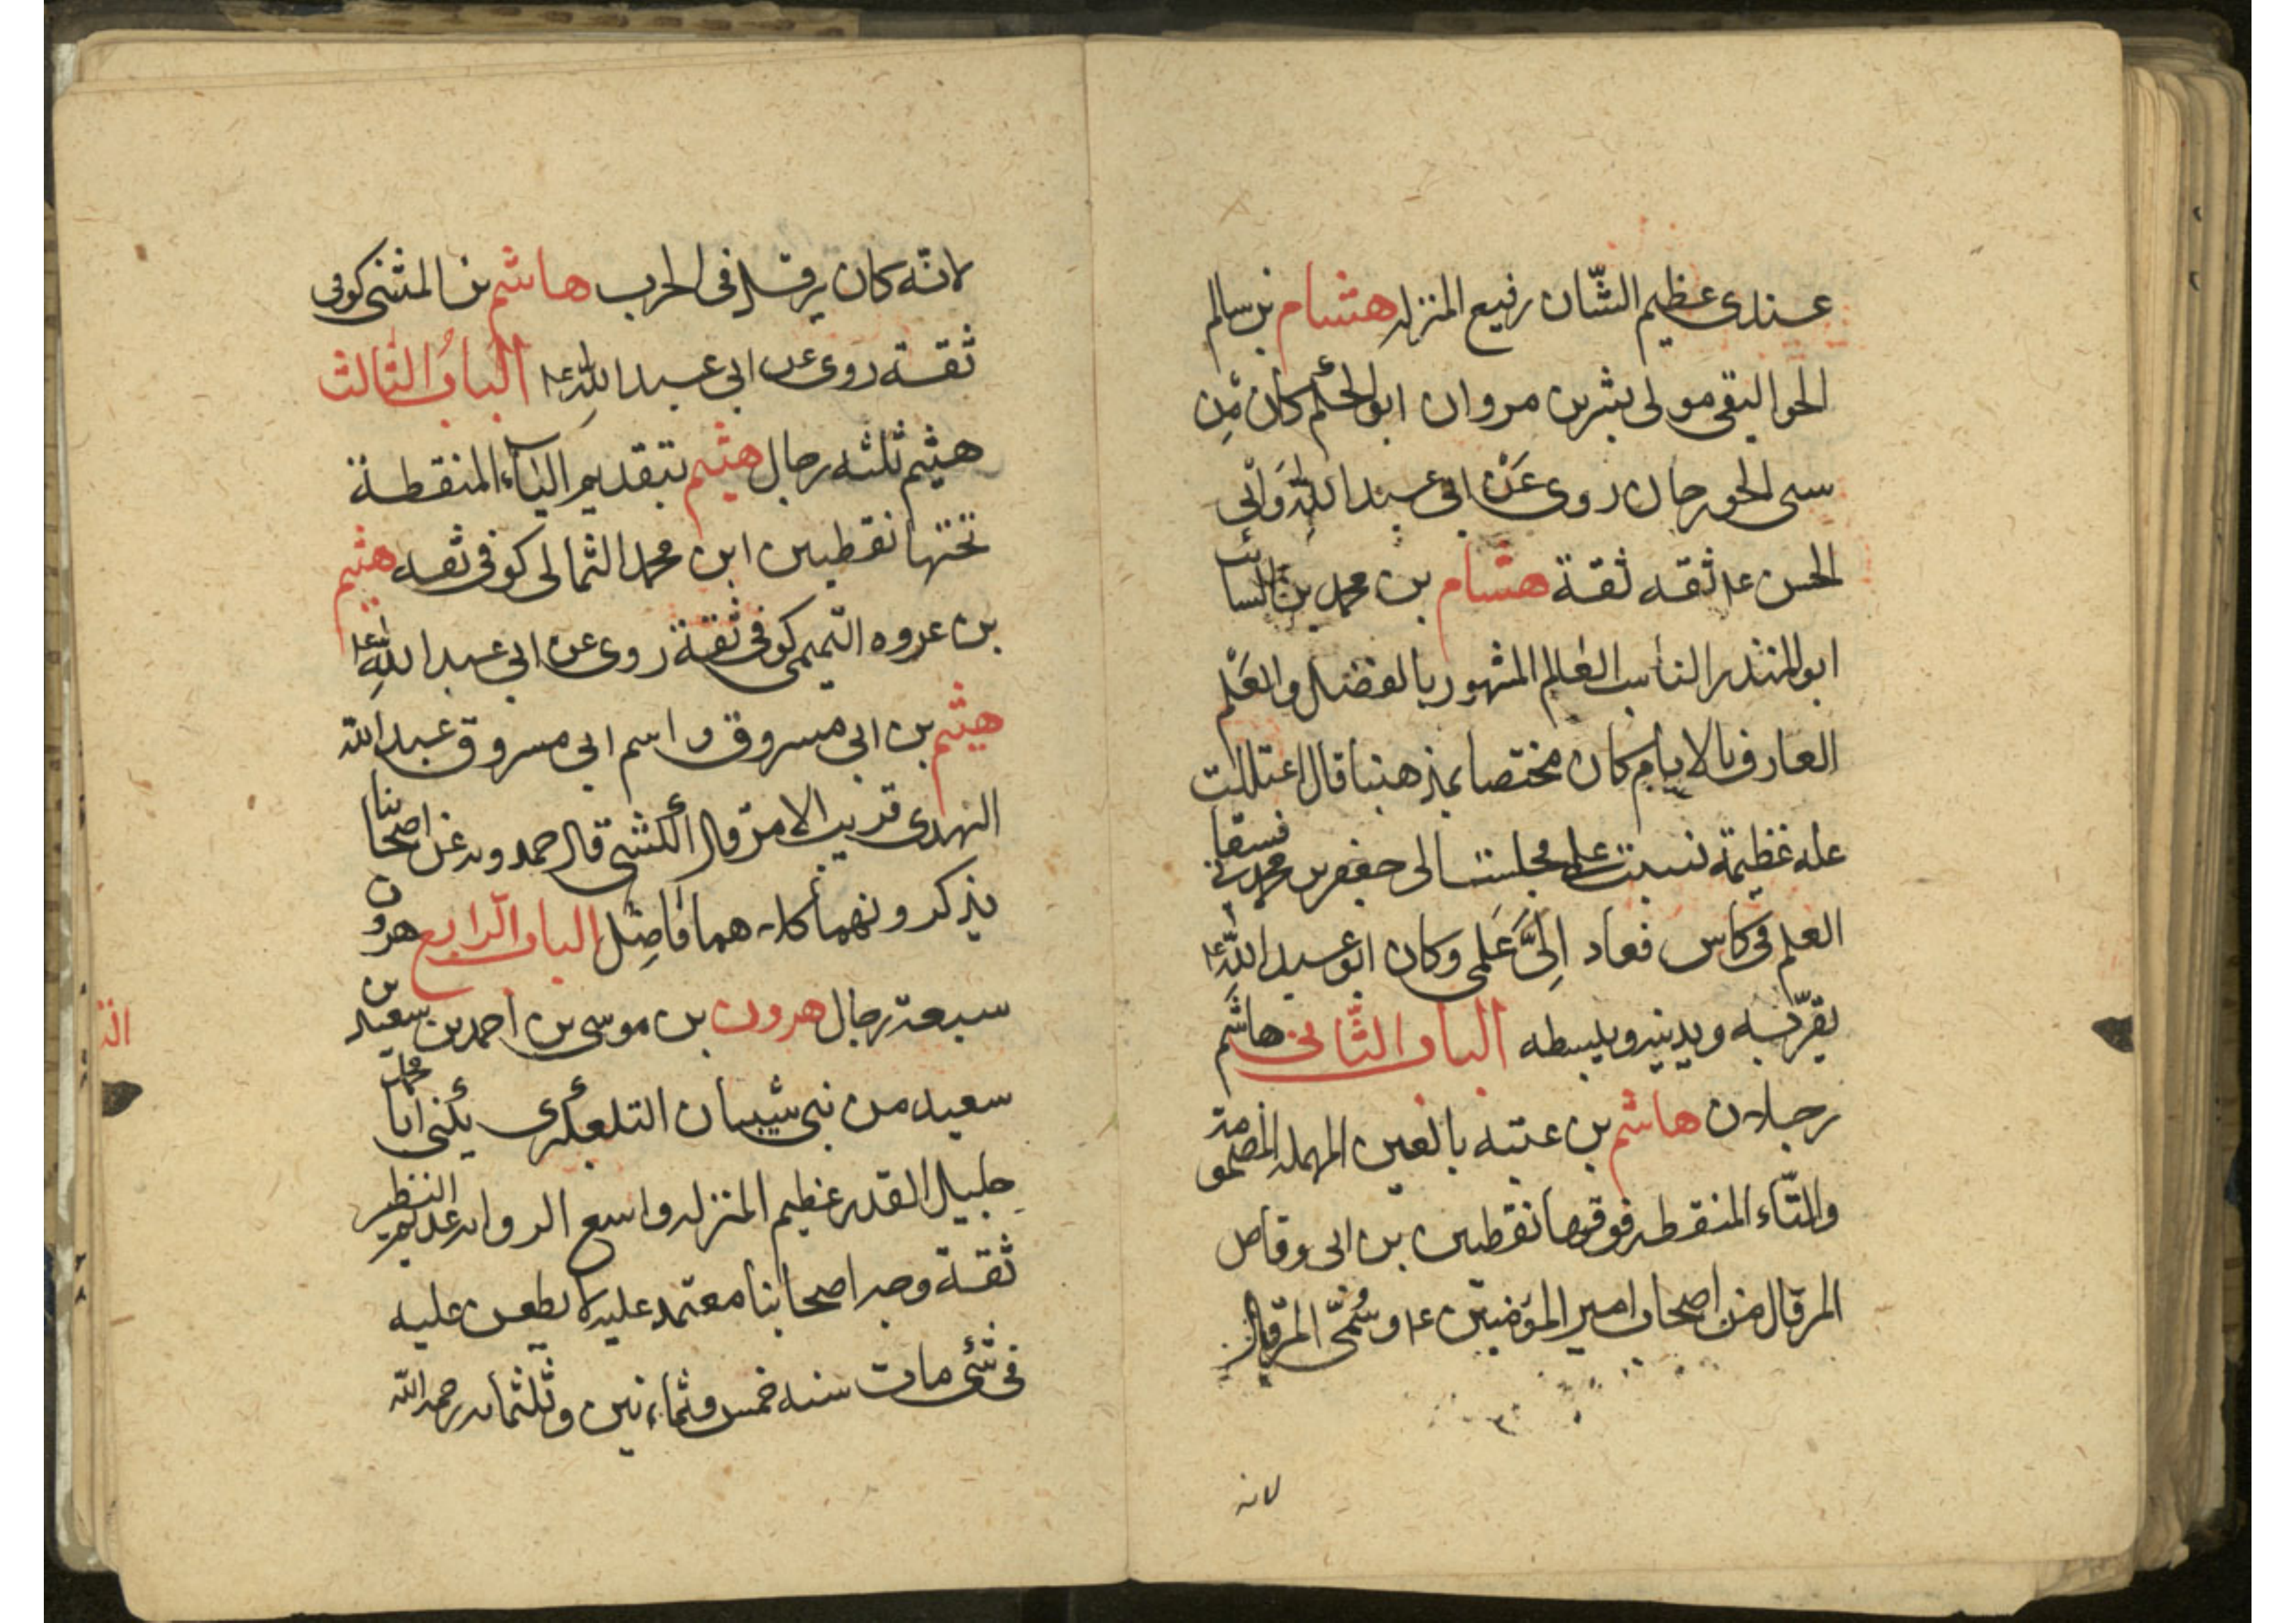 عندى عظيم الشّان رفيع المنزله هشام بن سالم
الجواليقى مولى بشر بن مروان ابو الحكم كان مِن
سبى الجورجان روى عَن ابى عبد اللّه وَابى
الحسن ع‍ ثقه ثقة هشام بن محمد بن السائب
ابو المنذر الناسب العالم المشهور بالفضل والعلم
العارف بالايام كان مختصا بمذهبنا قال اعتللت
عله عظيمة نسيت علمى فجلست الى جعفر بن محمد فسقانى
العلم فى كاس فعاد اِلىَّ عَلمى وكان ابو عبد اللّه ع‍
يقرّبه ويدنيه ويبسطه الباب الثّانى هاشم
رجلان هاشم بن عتبه بالعين المهمله المضمومة
والتّاء المنقطه فوقها نقطين بن ابى وقاص
المرقال من اصحاب امير المؤمنين ع‍ وسُمّى المرقال
لانه
لانّه كان يرقل فى الحرب هاشم بن المثنى كوفى
ثقة روى عن ابى عبد اللّه ع‍ البابُ الثالث
هيثم ثلثه رجال هيثم بتقديم الياء المنقطة
تحتها نقطين ابن محمد الثمالى كوفى ثقه هيثم
بن عروه التّميمى كوفى ثقة روى عن ابى عبد اللّه ع‍
هيثم بن ابى مسروق واسم ابى مسروق عبد اللّه
النهدى قريب الامر قال الكشى قال حمدويه عن اصحابنا
يذكرونهما كلاهما فاضِل الباب الرّابع هرون
سبعة رجال هرون بن موسى بن احمد بن سعيد بن
سعيد من بنى شيبان التلعكبرى يكنى ابا محمد
جليل القدر عظيم المنزله واسع الروايه عديم النظير
ثقة وجه اصحابنا معتمد عليه لا يطعن عليه
فى شئ مات سنه خمس وثمانين وثلثمايه رحمه اللّه